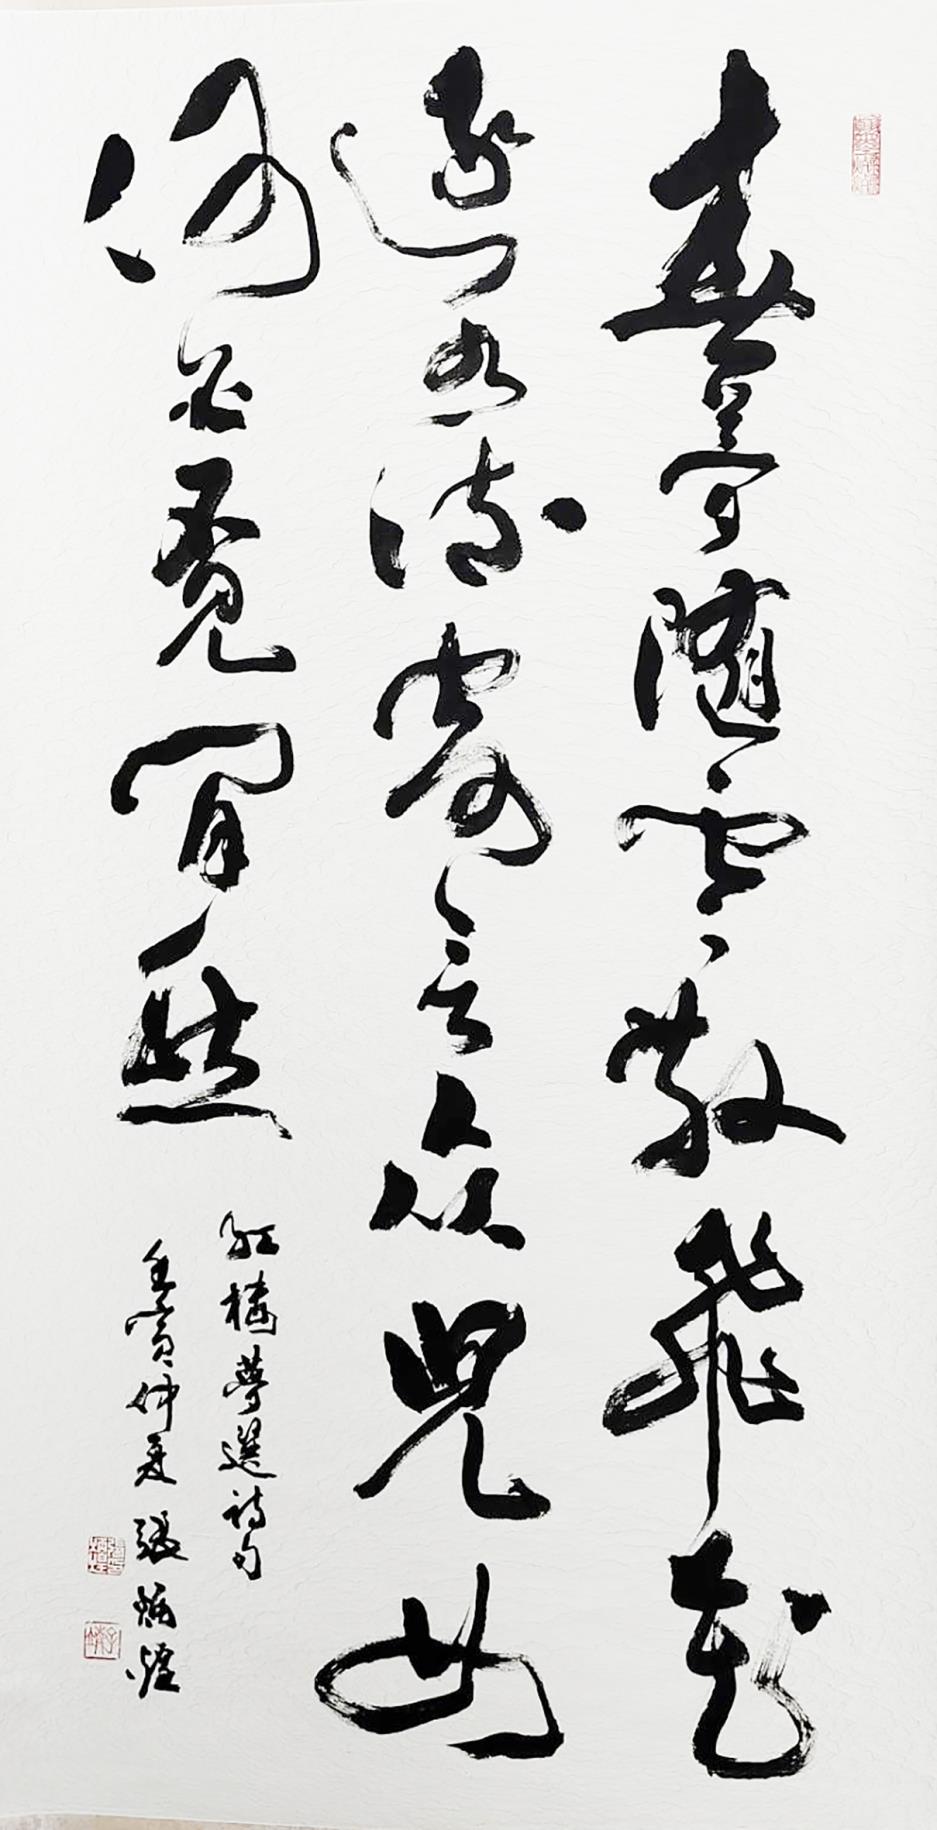 春夢随雲散飛花
逐水流寄言众兒女
何必覓閒愁
紅樓夢選詩句
壬寅仲夏張炳煌